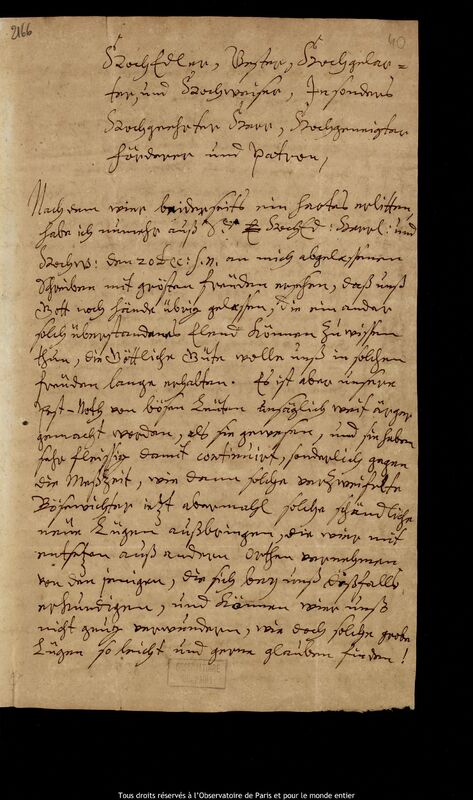 2166
40
HochEdler, Vester, Hochgelar=
ter, und Hochweiser, Insonders
Hochgeehrter Herr, Hochgeneigter
förderer und Patron,
Nachdem wier beiderseits ein hartes erlitten,
habe ich nunmehr auß HochEd: Herrl: und
Hochw: den 20 Dec: s. n. an mich abgelaßenen
Schreiben mit grösten freuden ersehen, daß unß
Gott noch hände übrig gelaßen, die ein ander
solch überstandenes Elend können zu wissen
thun, die Göttliche Güte wolle unß in solchen
freuden lange erhalten. Es ist aber unsere
Pest-Noth von bösen Leüten unsäglich weit ärger
gemacht worden, als sie gewesen, und sie haben
sehr fleissig damit continuirt, sonderlich gegen
die Meßzeit, wie dann solche verzweifelte
Bösewichter itzt abermahl solche schändliche
neüe Lügen außbringen, die wier mit
entsetzen auß andern Orthen vernehmen
von den jenigen, die sich bey unß deßfalls
erkundigen, und können wier unß
nicht genug verwundern, wie doch solche grobe
Lügen so leicht und gerne glauben finden!
OBSERVATOIRE
DE PARIS
Tous droits réservés à l'Observatoire de Paris et pour le monde entier